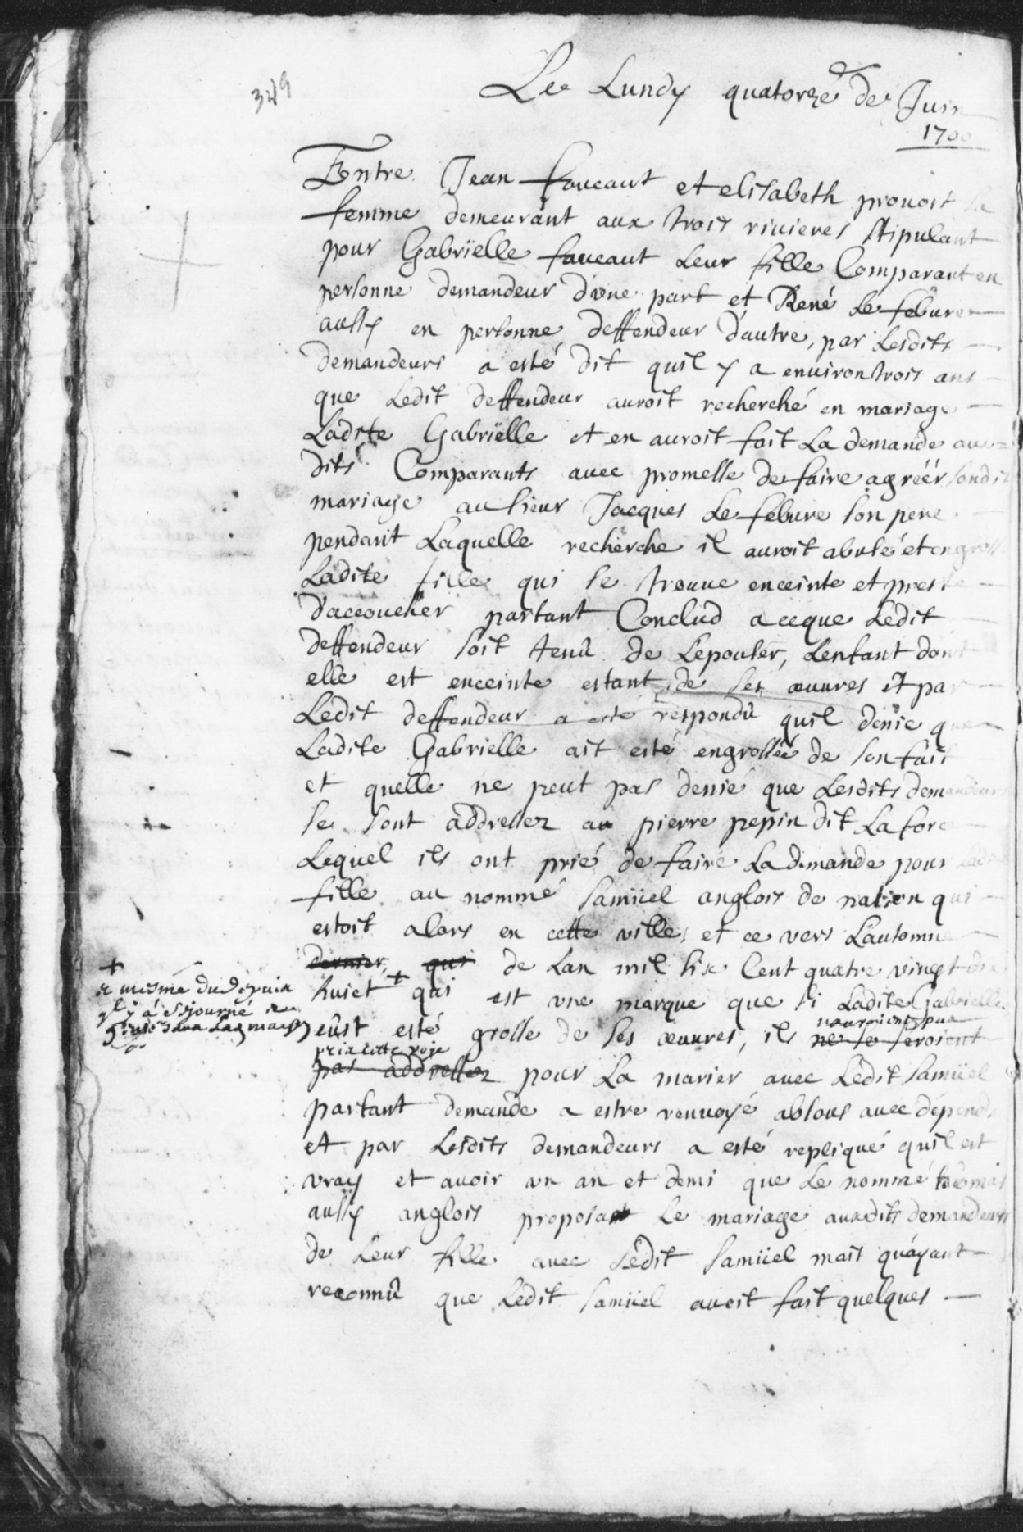 349
Le Lundy quatorze de Juin
1700
Entre Jean faveaut et elisabeth provost sa
femme demeurant aux trois rivieres stipulant
pour Gabrïelle faveaut leur fille Comparant en
personne demandeur dune part et René Le febure
aussy en personne deffendeur dautre, par Lesdits
demandeurs a esté dit quil y a environ trois ans
que Ledit deffendeur auroit recherché en mariage
Ladite Gabrïelle et en auroit fait La demande aus
dits Comparants avec promesse de faire agréér sondit
mariage au sieur Jacques Le febure son pere
pendant Laquelle recherche il auroit abusé et engrossé
Ladite fille qui se trouve enceinte et preste
daccoucher partant Conclud a ceque Ledit
deffendeur soit tenû de Lepouser, Lenfant dont
elle est enceinte estant de ses œuvres et par
Ledit deffendeur a esté respondû quil denie que
Ladite Gabrielle ait esté engrossée de son fait
et quelle ne peut pas denié que Lesdits demandeurs
se sont addressez au pierre pepin dit Laforce
Lequel ils ont prié de faire La demande pour
fille au nommé Samüel anglois de nation qui
estoit alors en cette ville et ce vers Lautomne
dernier, qui de Lan mil six Cent quatre vingt dix
huict + qui est une marque que si Ladite Gabrielle
+
et mesme du depuis
y a sejourné
eûst esté grosse de ses œuvres, ils ne se seroient
nauroient pas
prié cette
pas addressez pour La marier avec Ledit Samüel
partant demande a estre renvoyé absous avec dépends
et par Lesdits demandeurs a esté repliqué quil est
vray et avoir un an et demi que Le nommé thomas
aussy anglois proposa Le mariage auxdits demandeurs
de Leur fille avec Ledit Samüel mais quayant
reconnû que Ledit Samüel avoit fait quelques